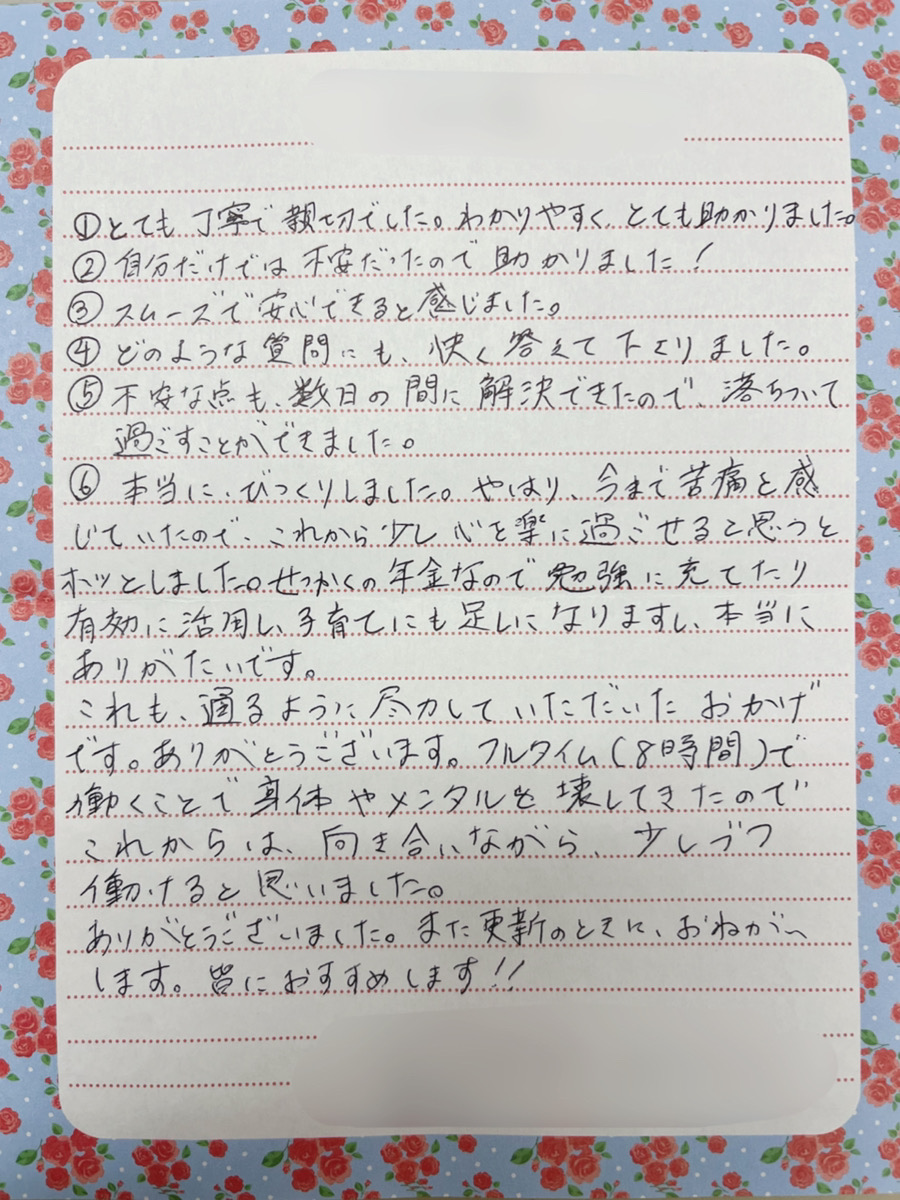 ①とても丁寧で親切でした。わかりやすく、とても助かりました。
②自分だけでは不安だったので助かりました!
③スムーズで安心できると感じました。
④どのような質問にも、快く答えて下さりました。
⑤不安な点も、数日の間に解決できたので、落ちついて
過ごすことができました。
⑥本当に、びっくりしました。やはり、今まで苦痛と感
じていたので、これから少し心を楽に過ごせると思うと
ホッとしました。せっかくの年金なので勉強に充てたり
有効に活用し、子育てにも足しになりますし、本当に
ありがたいです。
これも、通るように尽力していただいたおかげ
です。ありがとうございます。フルタイム(8時間)で
働くことで身体やメンタルを壊してきたので
これからは、向き合いながら、少しづつ
働けると思いました。
ありがとうございました。また更新のときに、おねがい
します。皆におすすめします!!